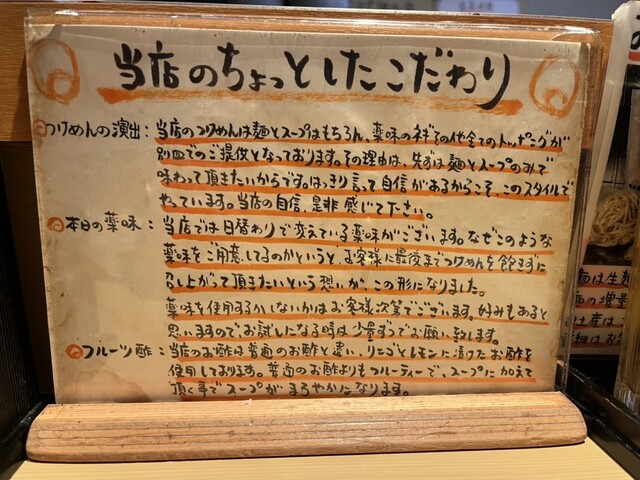 当店のちょっとしたこだわり
つけめんの演出：当店のつけめんは麺とスープはもちろん、薬味のネギその他全てのトッピングが
別皿でのご提供となっております。その理由は、先ずは麺とスープのみで
味わって頂きたいからです。はっきり言って自信があるからこそ、このスタイルで
やっています。当店の自信、是非感じて下さい。
本日の薬味：当店では日替わりで変えている薬味がございます。なぜこのような
薬味をご用意しているのかというと、お客様に最後までつけめんを飽きずに
召し上がって頂きたいという想いが、この形になりました。
薬味を使用するかしないかはお客様次第でございます。好みもあると
思いますのでお試しになる時は少量ずつでお願い致します。
フルーツ酢：当店のお酢は普通のお酢と違い、リンゴとレモンに漬けたお酢を
使用しております。普通のお酢よりもフルーティーで、スープに加えて
頂く事でスープがまろやかになります。
麺は生麺